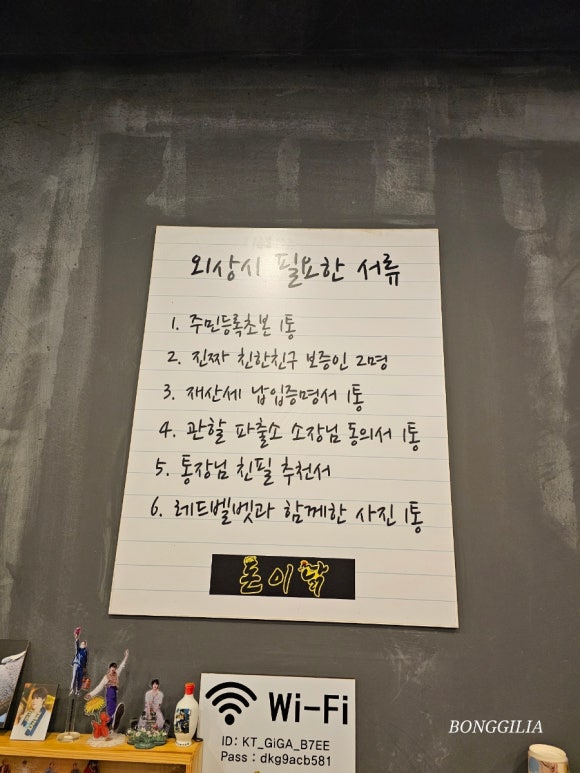 외상시 필요한 서류
1. 주민등록초본 1통
2. 진짜 친한친구 보증인 2명
3. 재산세 납입증명서 1통
4. 관할 파출소 소장님 동의서 1통
5. 통장님 친필 추천서
6. 레드벨벳과 함께한 사진 1통
돈이닭
Wi-Fi
ID: KT_GiGA_B7EE
Pass : dkg9acb581
BONGGILIA